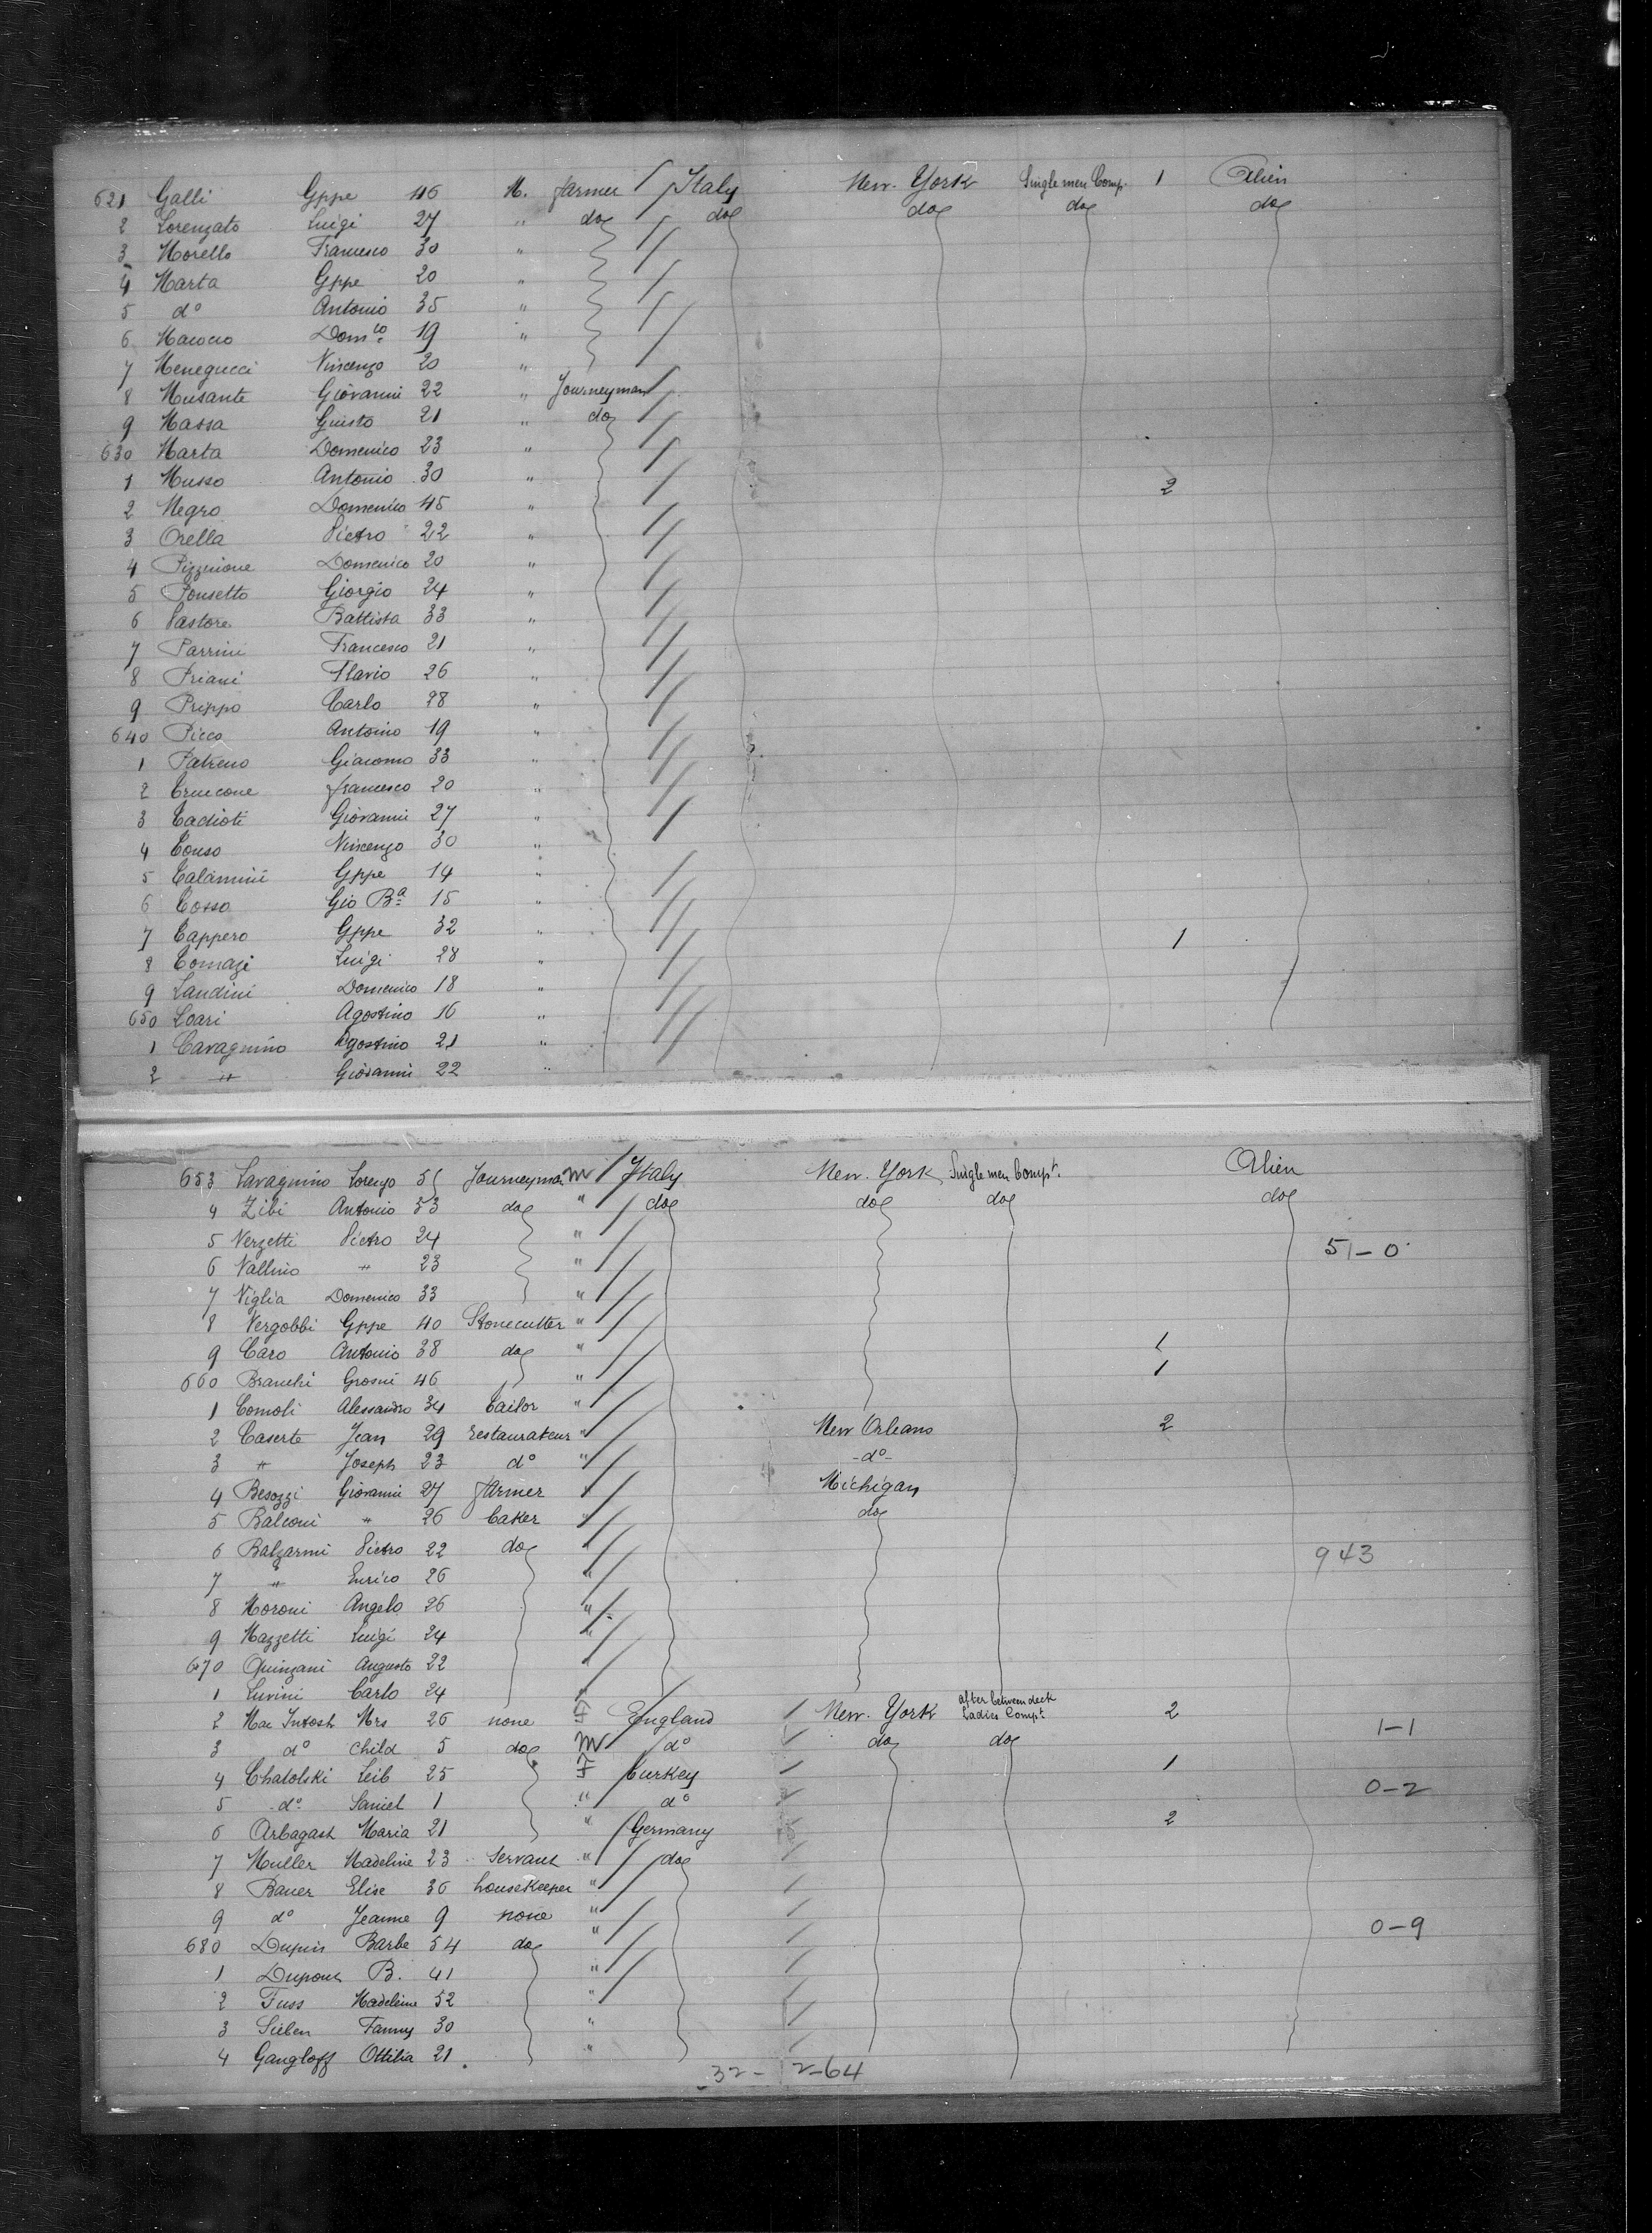 621 Galli Gppe 46 M. farmer Italy New. York Single men Comp. 1 Alien
2 Lorenzato Luigi 27 " do do do do do
3 Morello Francesco 30 "
4 Marta Gppe 20 "
5 do Antonio 35 "
6 Maiocco Domco 19 "
7 Menegucci Vincenzo 20 "
8 Musante Giovanni 22 " Journeyman
9 Massa Guisto 21 " do
630 Marta Domenico 23 "
1 Musso Antonio 30 " 2
2 Negro Domenico 45 "
3 Orella Pietro 22 "
4 Domenico 20 "
5 Ponsetto Giorgio 24 "
6 Pastore Battista 33 "
7 Parrini Francesco 21 "
8 Priani Flavio 26 "
9 Prippo Carlo 28 "
640 Picco Antonio 19 "
1 Patreno Giacomo 33 "
2 Truccone francesco 20 "
3 Tadioti Giovanni 27 "
4 Tonso Vincenzo 30 "
5 Calamini Gppe 14 "
6 Cosso Gio Ba 15 "
7 Cappero Gppe 32 " 1
8 Comazi Luigi 28 "
9 Landini Domenico 18 "
650 Loari Agostino 16 "
1 Cavagnino Agostino 21 "
2 " Giovanni 22 "
653 Lavagnino Lorenzo 51 Journeyman M Italy New. York Single men Compt. Alien
4 Zibi Antonio 53 do " do do do do
5 Verzetti Pietro 24 " 51-0
6 Vallino " 23 "
7 Viglia Domenico 33 "
8 Vergobbi Gppe 40 Stonecutter "
9 Caro Antonio 38 do " 1
660 Branchi Grosni 46 " 1
1 Comoli Alessandro 34 tailor "
2 Caserte Jean 29 restaurateur " New Orleans 2
3 " Joseph 23 do " -do-
4 Besozzi Giovanni 27 farmer " Michigan
5 Balconi " 26 baker " do
6 Balzarini Pietro 22 do " 943
7 " Enrico 26 "
8 Moroni Angelo 26 "
9 Mazzetti Luigi 24 "
670 Quinzani Augusto 22 "
1 Luvini Carlo 24 "
2 Mac Intosh Mrs 26 none F England New. York after between deck Ladies Compt 2
3 do Child 5 do M do do do 1-1
4 Chatolski Leib 25 F Turkey 1
5 do Saniel 1 " do 0-2
6 Arbagash Maria 21 " Germany 2
7 Muller Madeline 23 Servant " do
8 Bauer Elise 36 housekeeper "
9 do Jeanne 9 none " 0-9
680 Dupuis Barbe 54 do "
1 Dupont B. 41 "
2 Fuss Madeleine 52 "
3 Sieben Fanny 30 "
4 Gangloff Ottilia 21 "
32- 2-64